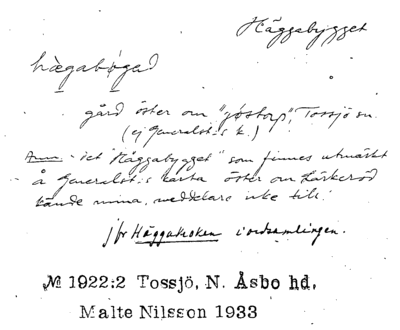 Häggabygget
hægabøgad
gård öster om "jøstorp", Tossjö sn.
(ej Generalst:s k.)
Anm. - ict "Häggabygget" som finnes utmärkt
å Generalst:s karta öster om Lärkeröd
kände mina meddelare inte till.
jfr Häggakroken i ordsamlingen.
№ 1922:2 Tossjö, N. Åsbo hd,
Malte Nilsson 1933